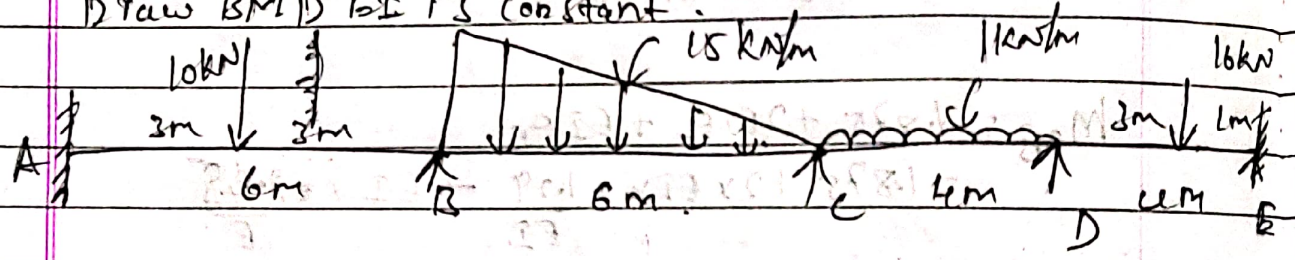 Draw BMD EI is constant.
10kN 15 kN/m 1kN/m 16kN
3m 3m 3m 1m
A 6m B 6m. C 4m D 4m E